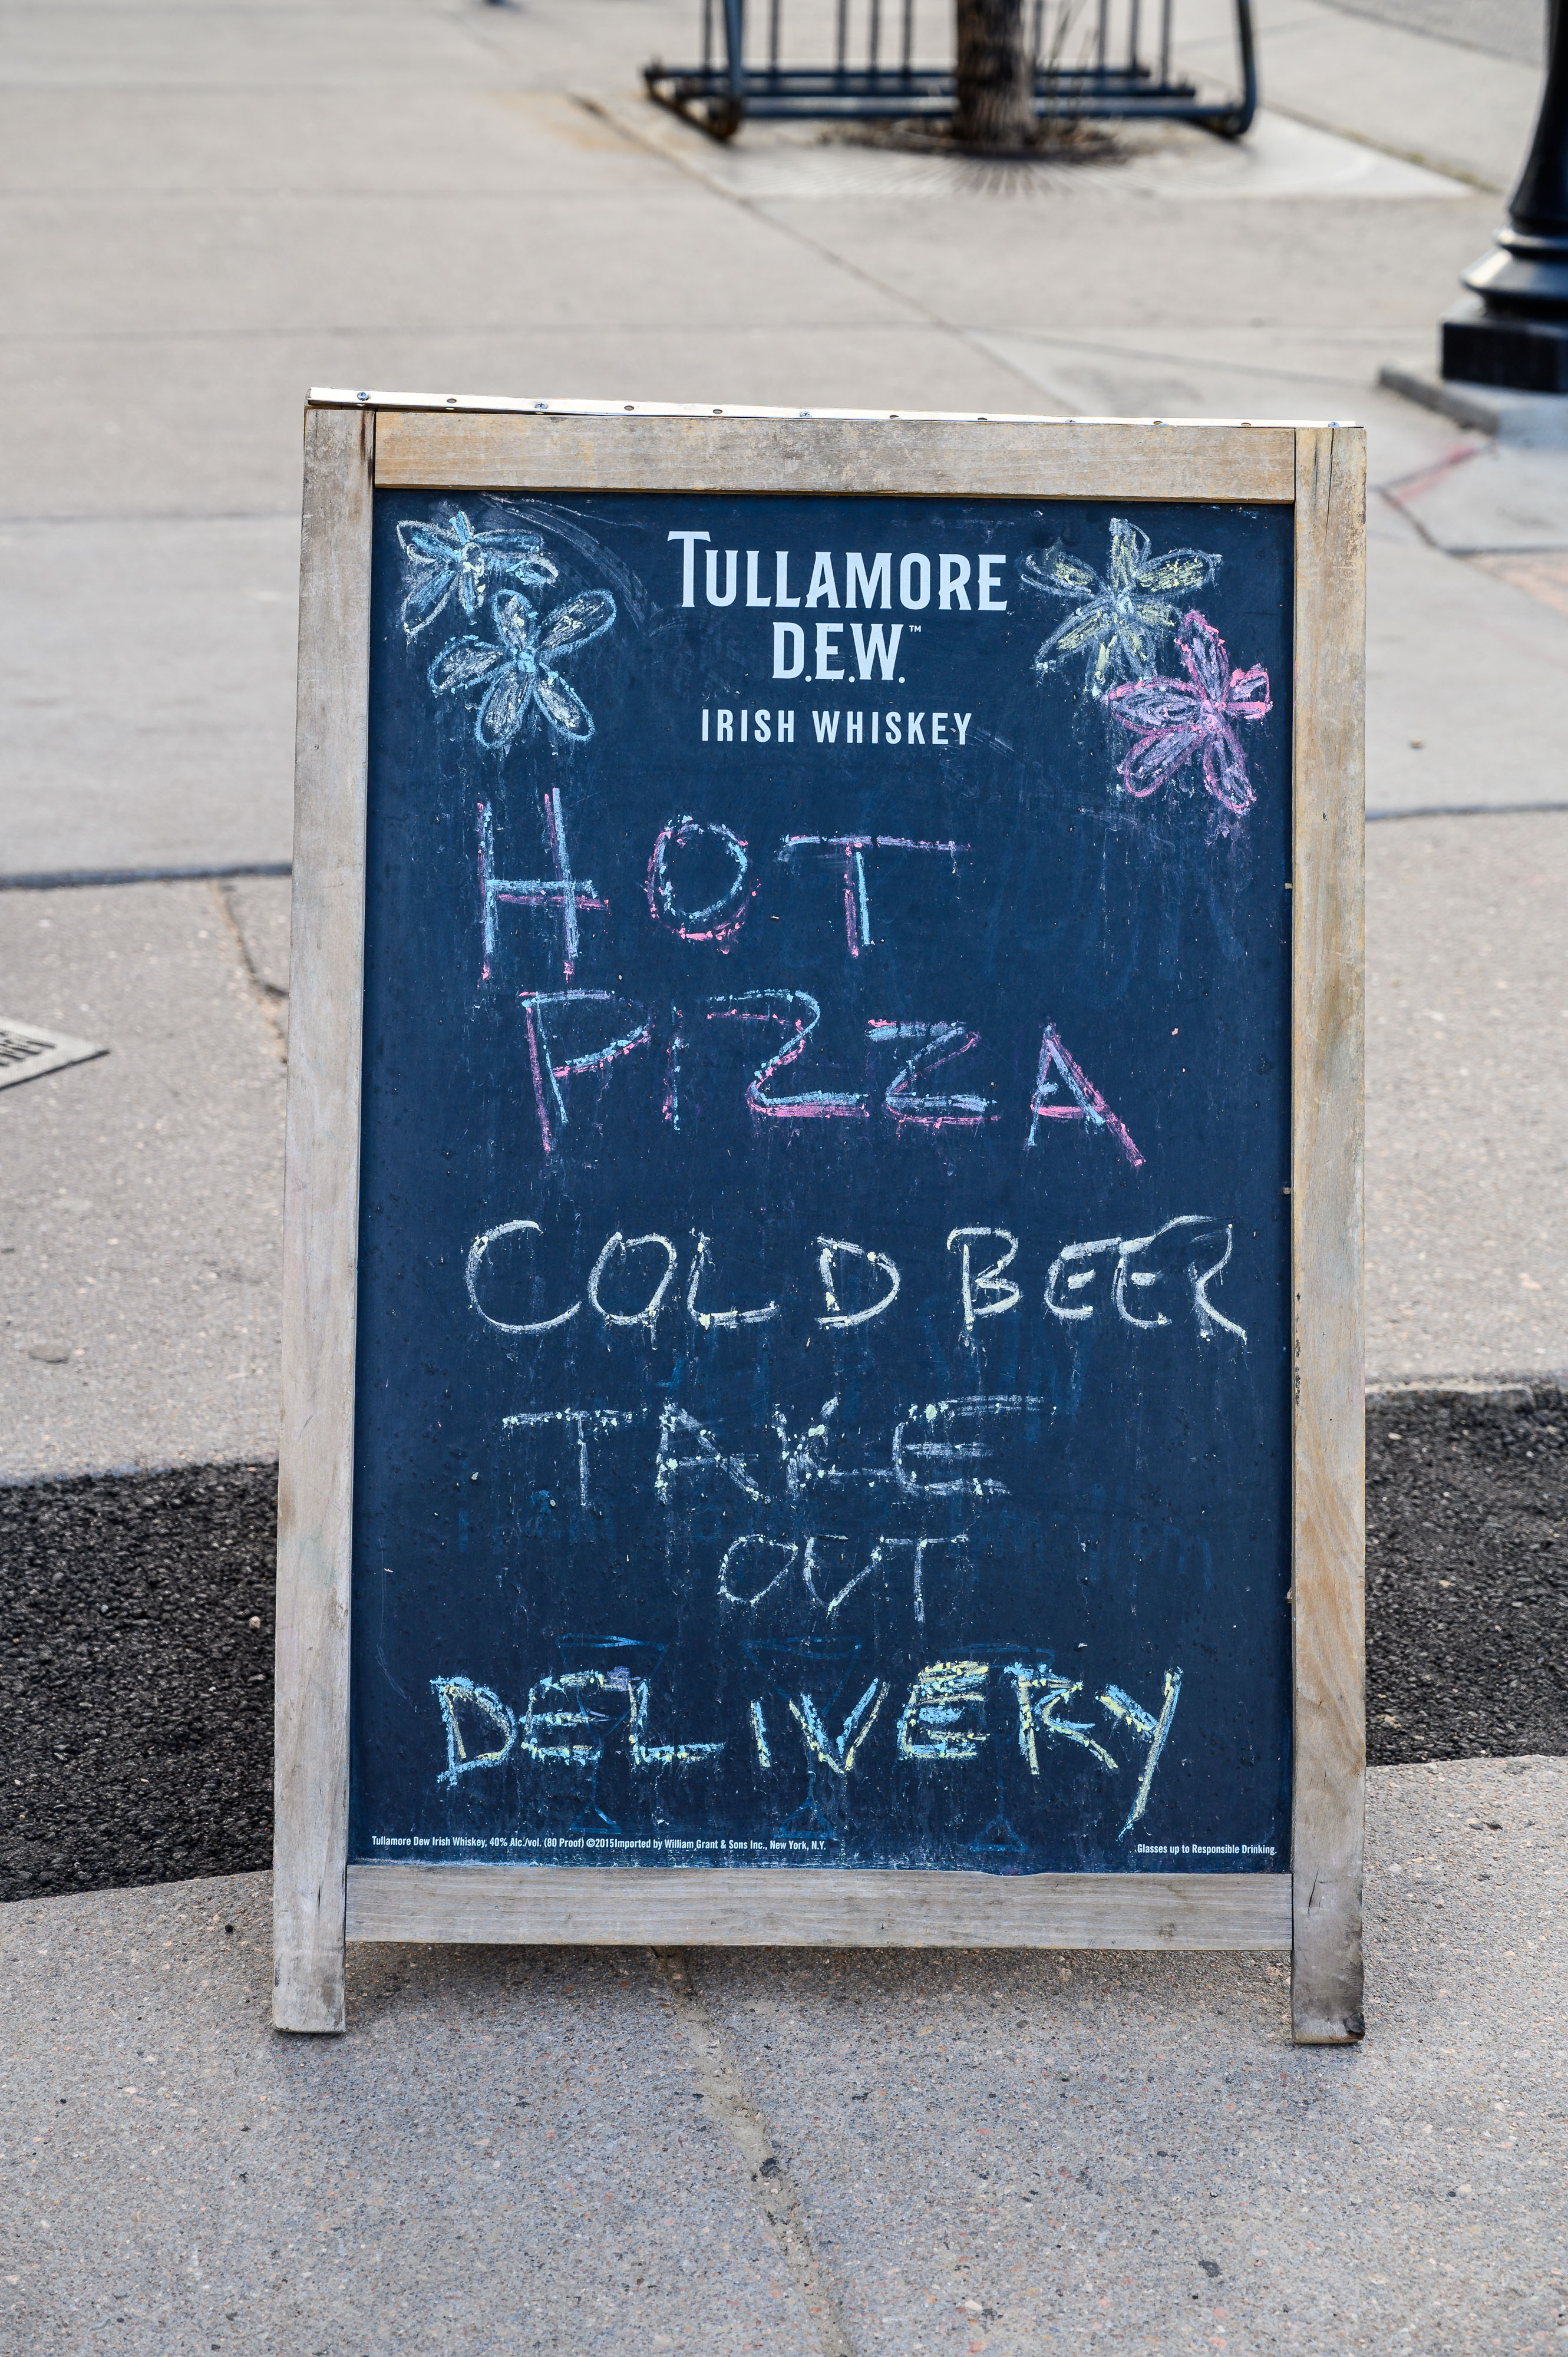 TULLAMORE
D.E.W.™
IRISH WHISKEY
HOT
PIZZA
COLD BEER
TAKE
OUT
DELIVERY
Tullamore Dew Irish Whiskey, 40% Alc./vol. (80 Proof) ©2015Imported by William Grant & Sons Inc., New York, N.Y.
Glasses up to Responsible Drinking.